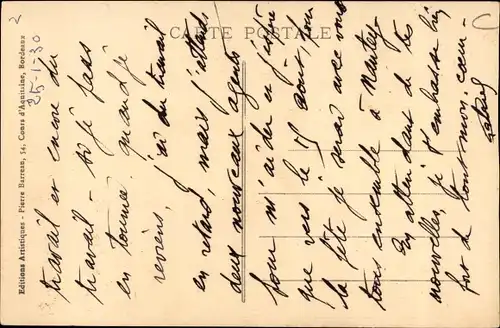 CARTE POSTALE
Editions Artistiques - Pierre Barreau, 54, Cours d'Aquitaine, Bordeaux
25-1-30
2
travail et encore du
travail - si je pars
en tournée quand je
reviens, j'ai du travail
en retard, mais j'attends
deux nouveaux agents
pour m'aider et j'espère
que vers le 15 août, pour
la fête je serai avec vous
tous ensemble à Nantes
En attendant de tes
nouvelles, je t'embrasse bien
fort de tout mon cœur